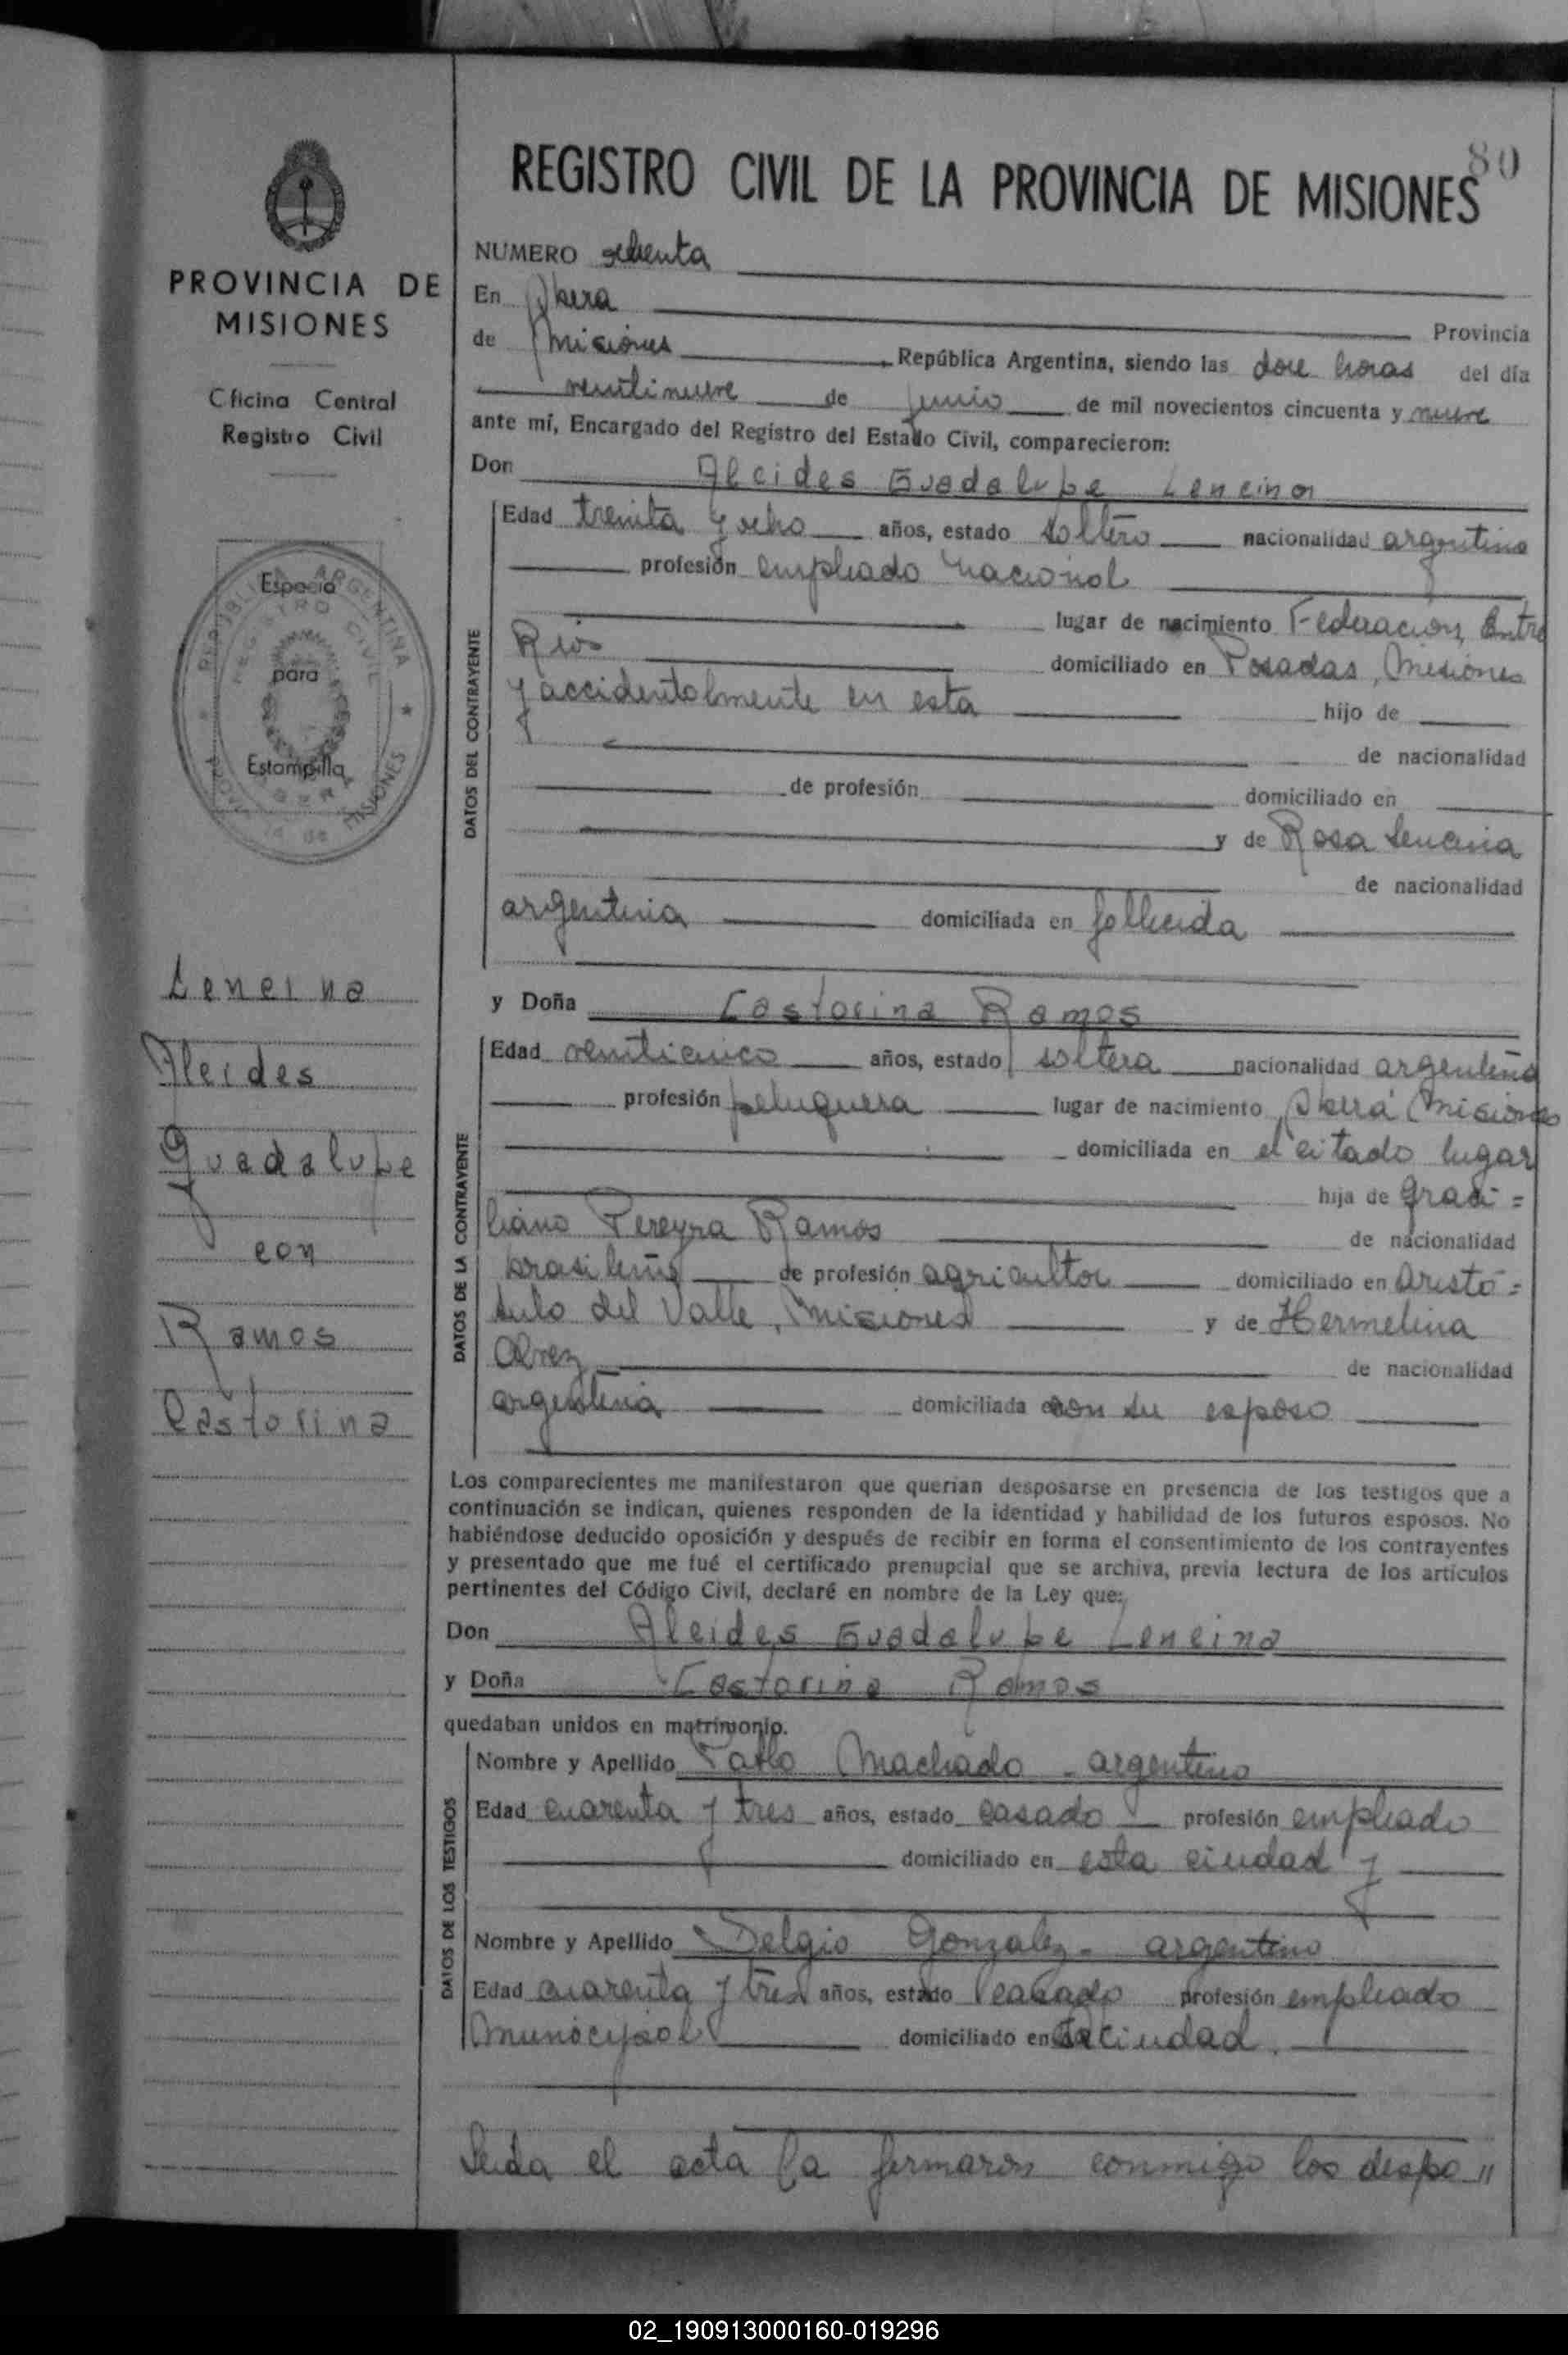 80
REGISTRO CIVIL DE LA PROVINCIA DE MISIONES
PROVINCIA DE
MISIONES
Oficina Central
Registro Civil
REPUBLICA ARGENTINA
REGISTRO CIVIL
Espacio
para
Estampilla
MISIONES
Lencina
Alcides
Guadalupe
con
Ramos
Castorina
NUMERO ochenta
En Obera
Provincia
de Misiones, República Argentina, siendo las doce horas del día
veintinueve de junio de mil novecientos cincuenta y nueve
ante mí, Encargado del Registro del Estado Civil, comparecieron:
Don Alcides Guadalupe Lencina
DATOS DEL CONTRAYENTE
Edad treinta y ocho años, estado soltero nacionalidad argentino
profesión empleado nacional
lugar de nacimiento Federacion, Entre
Rios domiciliado en Posadas, Misiones
y accidentalmente en esta hijo de
de nacionalidad
de profesión domiciliado en
y de Rosa Lencina
de nacionalidad
argentina domiciliada en fallecida
y Doña Castorina Ramos
DATOS DE LA CONTRAYENTE
Edad veinticinco años, estado soltera nacionalidad argentina
profesión peluquera lugar de nacimiento Oberá Misiones
domiciliada en el citado lugar
hija de Graci=
liano Pereyra Ramos de nacionalidad
brasileño de profesión agricultor domiciliado en Aristó=
bulo del Valle, Misiones y de Hermelina
de nacionalidad
argentina domiciliada con su esposo
Los comparecientes me manifestaron que querían desposarse en presencia de los testigos que a
continuación se indican, quienes responden de la identidad y habilidad de los futuros esposos. No
habiéndose deducido oposición y después de recibir en forma el consentimiento de los contrayentes
y presentado que me fué el certificado prenupcial que se archiva, previa lectura de los artículos
pertinentes del Código Civil, declaré en nombre de la Ley que:
Don Alcides Guadalupe Lencina
y Doña Castorina Ramos
quedaban unidos en matrimonio.
DATOS DE LOS TESTIGOS
Nombre y Apellido Pablo Machado - argentino
Edad cuarenta y tres años, estado casado profesión empleado
domiciliado en esta ciudad y
Nombre y Apellido Delgio Gonzalez - argentino
Edad cuarenta y tres años, estado casado profesión empleado
municipal domiciliado en ciudad.
Leida el acta la firmaron conmigo los despo"
02_190913000160-019296